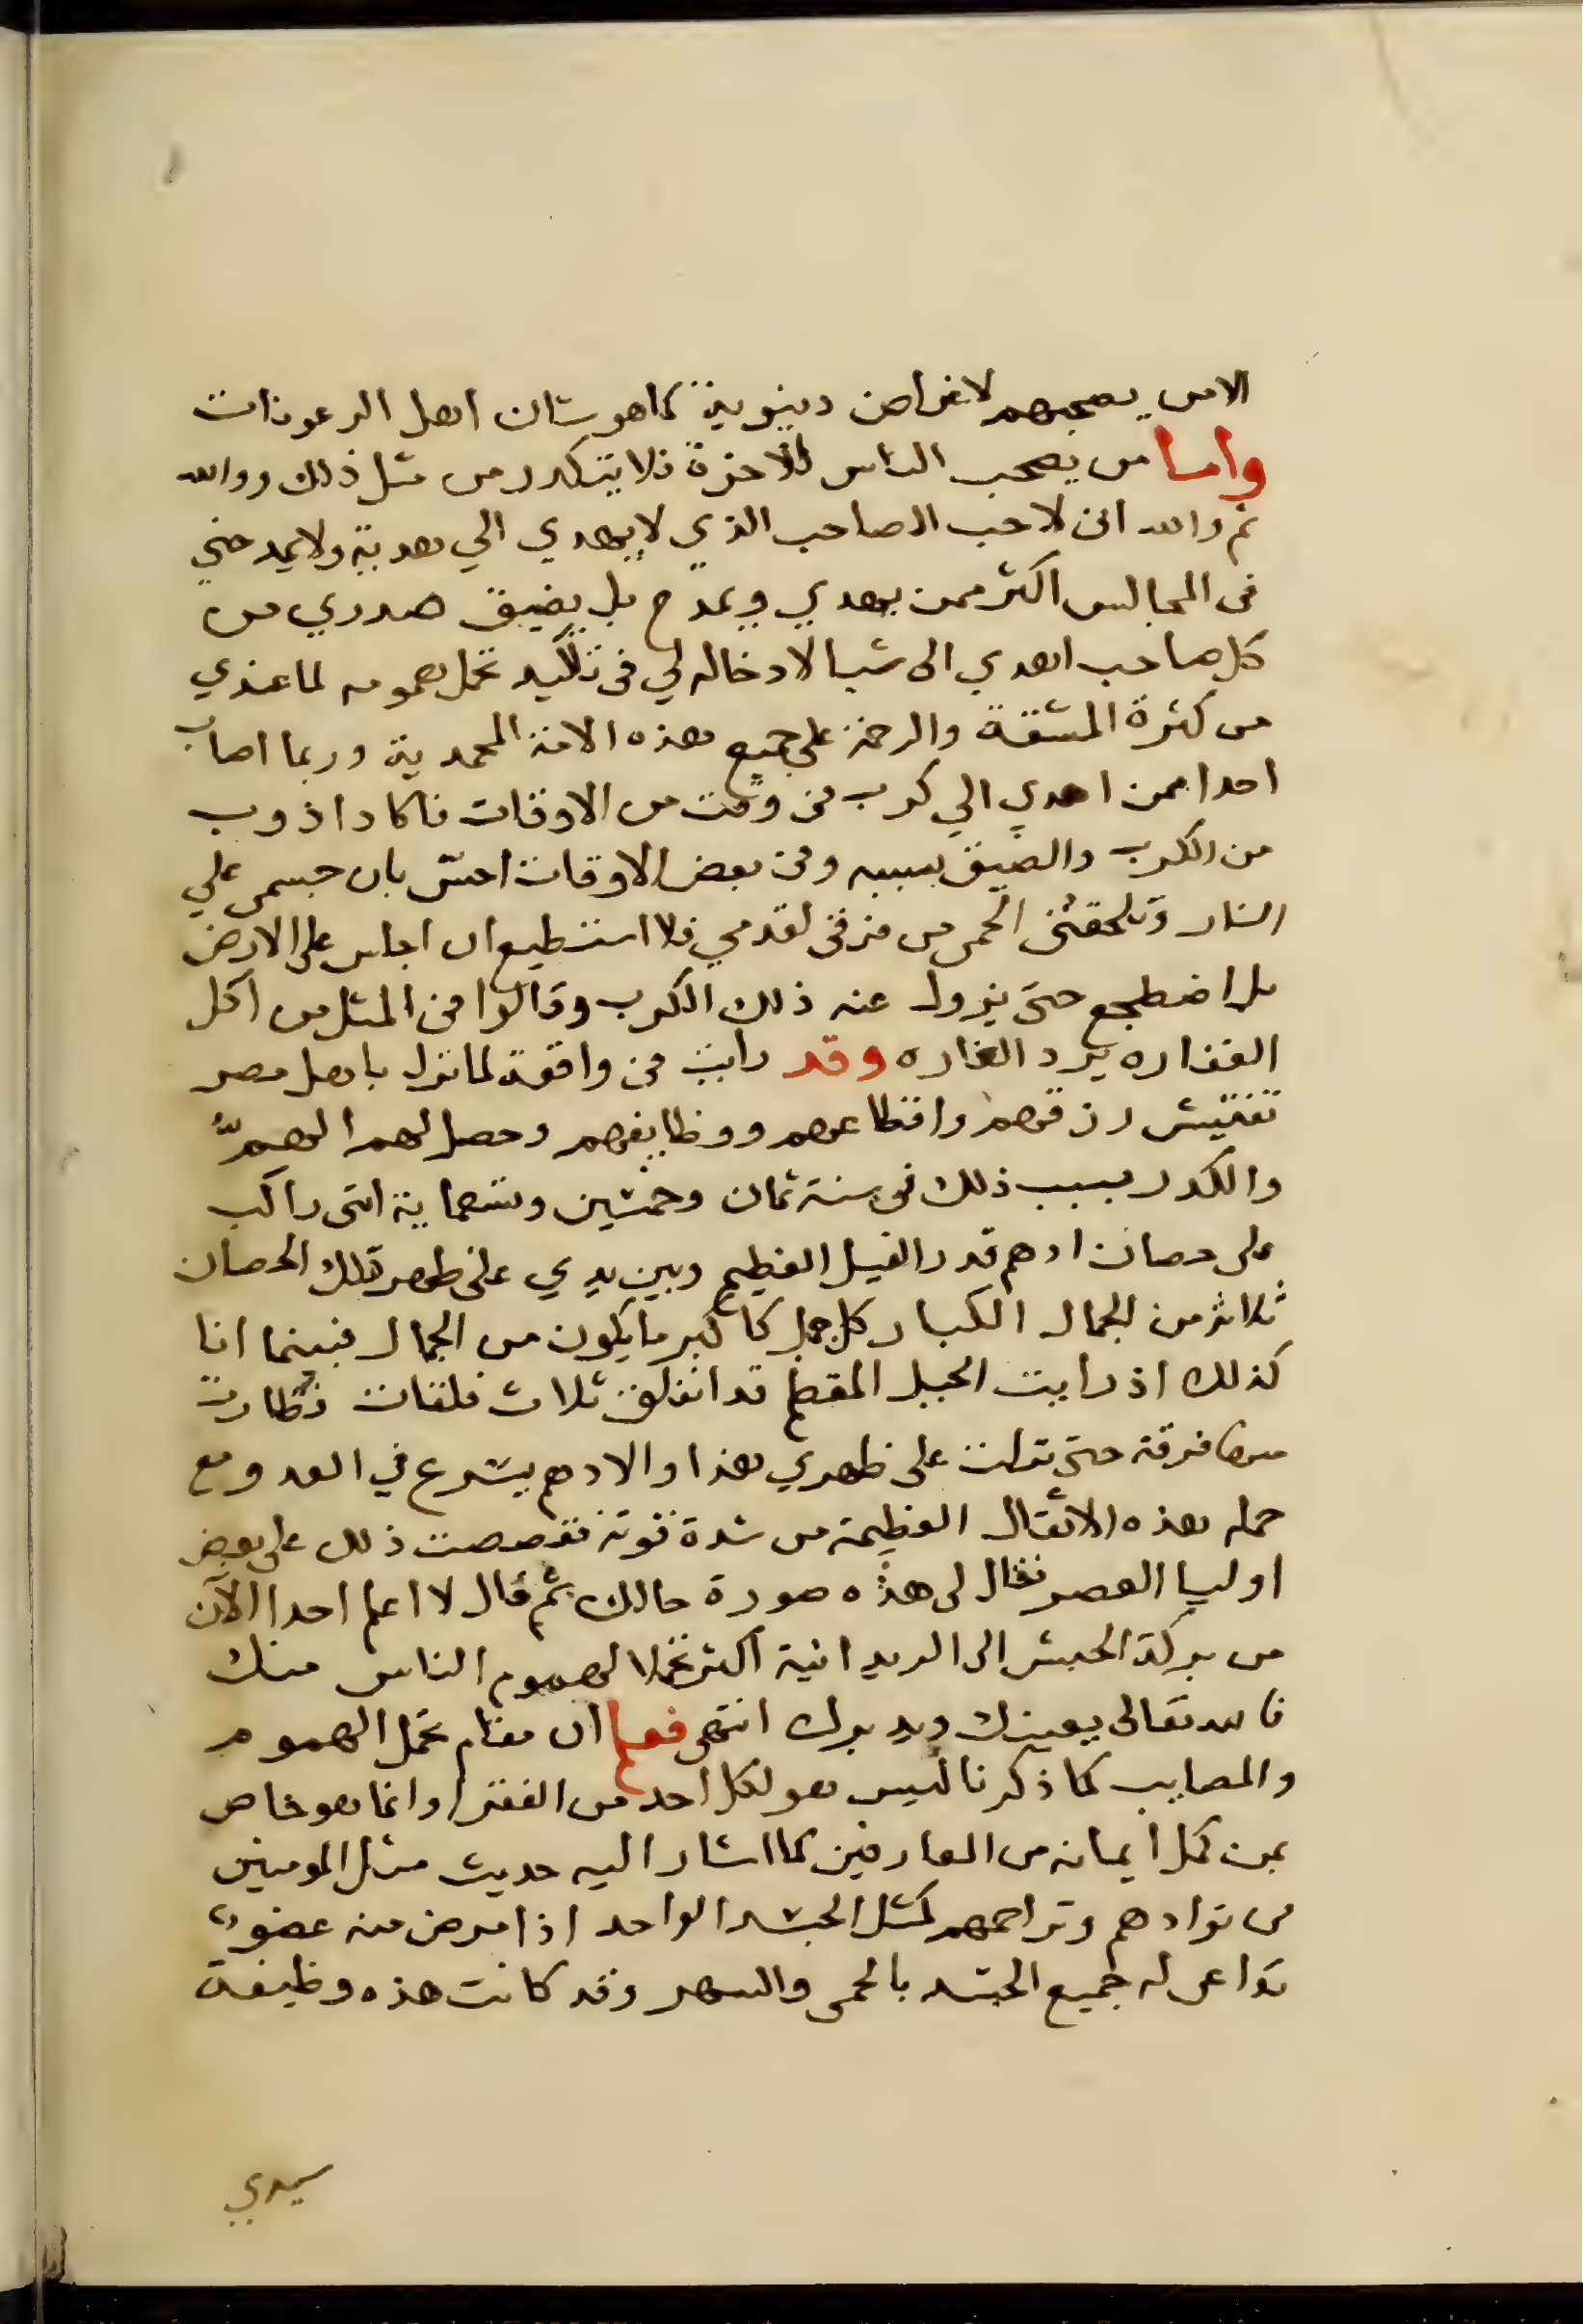 الا من يصحبهم لاغراض دينوية كما هو شان اهل الرعونات
واما من يصحب الناس للاخرة فلا يتكدر من مثل ذلك ووالله
ثم والله انى لاحب الصاحب الذي لا يهدي الي هدية ولا يمدحني
فى المجالس اكثر ممن يهدي ويمدح بل يضيق صدري من
كل صاحب اهدي الى شيا لادخاله لي فى تاكيد تحمل همومه لما عندي
من كثرة الشفقة والرحمة على جميع هذه الامة المحمدية وربما اصاب
احدا ممن اهدي الي كرب فى وقت من الاوقات فاكاد اذوب
من الكرب والضيق بسببه وفى بعض الاوقات احسّ بان جسمى على
النار وتلحقنى الحمى من فرقى لقدمي فلا استطيع ان اجلس على الارض
بل اضطجع حتى يزول عنه ذلك الكرب وقالوا فى المثل من اكل
الفتداره يرد الغاره وقد رايت فى واقعة لما نزل باهل مصر
تفتيش رزقهم واقطاعهم ووظايفهم وحصل لهم الهمّ
والكدر بسبب ذلك فى سنة ثمان وخمسين وتسعماية اننى راكب
على حصان ادهم قدر الفيل العظيم وبين يدي على ظهر تلك الحصان
ثلاثة من الجمال الكبار كل جمل كاكبر ما يكون من الجمال فبينما انا
كذلك اذ رايت الجبل المقطم قد انفلق ثلاث فلقات فطارت
منها فرقة حتى نزلت على ظهري هذا والادهم يسرع في العدو مع
حمله هذه الاثقال العظيمة من شدة قوته فقصصت ذلك على بعض
اوليا العصر فقال لى هذه صورة حالك ثم قال لا اعلم احدا الآن
من بركة الحبش الى الريدانية اكثر تحملا لهموم الناس منك
فالله تعالى يعينك ويدبرك انتهى فعلم ان مقام تحمل الهموم
والمصايب كما ذكرنا ليس هو لكل احد من الفقرا وانما هو خاص
بمن كمل ايمانه من العارفين كما اشار اليه حديث مثل المومنين
فى توادهم وتراحمهم كمثل الجسد الواحد اذا مرض منه عضو
تداعى له جميع الجسد بالحمى والسهر وقد كانت هذه وظيفة
سيدي